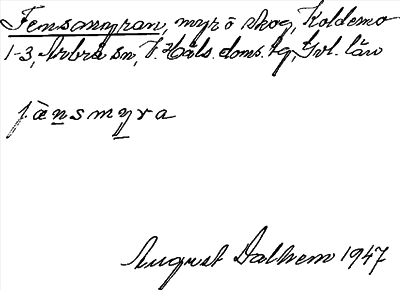 Fensmyran, myr o skog, Koldemo
1-3, Arbrå sn, V. Häls. doms. tg, Gvl. län
fæ̀nsmyra
August Dalhem 1947